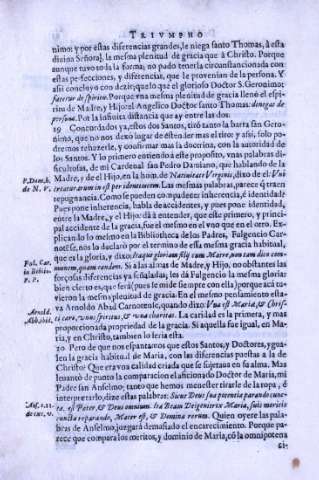 TRIVMPHO
nimo: y por estas diferencias grandes, le niega santo Thomas, à esta
diuina Señora, la mesma plenitud de gracia que à Christo. Porque
aunque tuuo toda la forma, no pudo tenerla circunstancionada con
estas perfecciones, y diferencias, que le prouenian de la persona. Y
assi concluyo con dezir, que lo que el glorioso Doctor S. Geronimo:
Porque vna mesma plenitud de gracia llenò el espiritu
de Madre, y Hijo: el Angelico Doctor santo Thomas: denegat de
persona. Por la infinita distancia que ay entre las dos.
19 Concordados ya, estos dos Santos, tirò tanto la barra san Geronimo,
que no nos dexo lugar de està en los mas el tiro: y assi, solo podemos
rehazerle, y confirmar mas la doctrina, con la autoridad de
los Santos. Y lo primero entiendo à este proposito, vnas palabras
de mi Cardenal san Pedro Damiano, que hablando de la
P. Dam. s.
de N. V.
Madre, y de el Hijo, en la hom. de Natiuitate Virginis, dixo de el: Vni
creaturarum inest per idemtitatem. Las mesmas palabras, parece q traen
repugnancia. Como se pueden compadecer inherencia, è identidad?
Pues pone inherencia, habla de accidentes, y pues pone identidad,
entre la Madre, y el Hijo: dà à entender, que este primero, y principal
accidente de la gracia, fue el mesmo en el vno que en el otro. Explicando
lo mesmo en la Bibliotheca de los Padres, Fulgencio Carnotense,
nos lo declarò por el termino de essa mesma gracia habitual,
que es la gloria, y dixo: Itaque gloriam filij cum Matre, non tam dico communem,
quam eandem.
Ful. Car.
in Biblio.
P. P.
Si a las almas de Madre, y Hijo, no obstantes las
forçosas diferencias ya señaladas, les dà Fulgencio la mesma gloria:
bien cierto es, que serà (pues se mide siempre con ella) porque acà tuuieron
la mesma plenitud de gracia. En el mesmo pensamiento estaua
Arnoldo Abad Carnotense, quando dixo: Vna est Maria, & Christi
caro, vnus spiritus, & vna charitas.
Arnold.
Abb. ibit.
La caridad es la primera, y mas
proporcionada propiedad de la gracia. Si aquella fue igual, en Maria,
y en Christo, tambien lo seria esta.
20 Pero de que nos espantamos que estos Santos, y Doctores, ygualen
la gracia habitual de Maria, con las diferencias puestas a la de
Christo? Que era vna calidad criada que se sujetaua en su alma. Mas
leuantò de punto la comparacion el aficionado Doctor de Maria, mi
Padre san Anselmo; tanto que hemos menester tirarle de la ropa, ò
interpretarlo, dize estas palabras: Sicut Deus sua potentia parando cuncta,
est Pater, & Deus omnium. Ita Beata Dei genitrix Maria, suis meritis
cuncta reparando, Mater est, & Domina rerum.
Ans. t. II.
de exc. v.
Quien oyere las palabras
de Anselmo, juzgarà demasiado el encarecimiento. Porque parece
que compara los meritos, y dominio de Maria, cõ la omnipotencia